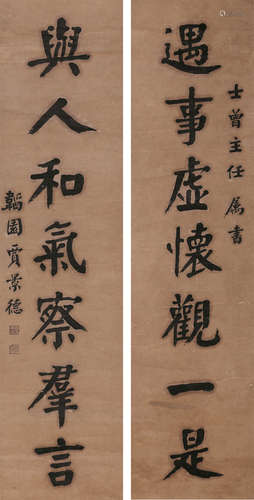 士曾主任属書
遇事虛懷觀一是
與人和氣察羣言
韜園賈景德